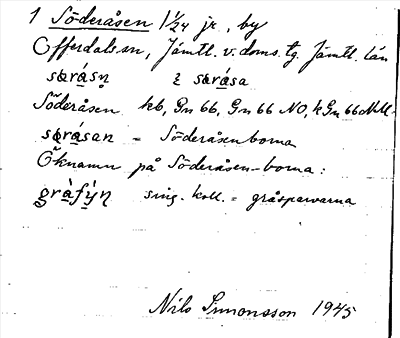 1 Söderåsen 1 1/24 jr, by
Offerdals sn, Jämtl. v. doms. tg. Jämtl. län
Söderåsen kb, Gn 66, Gn 66 NO, k Gn 66
= Söderåsenborna
Öknamn på Söderåsen-borna:
sing. koll. = gråsparvarna
Nils Simonsson 1945